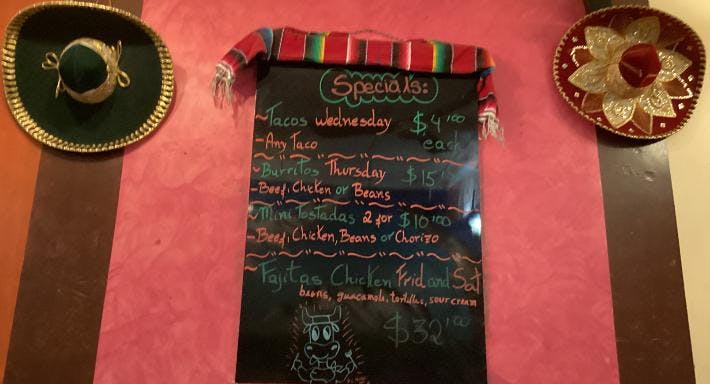 Specials:
~Tacos Wednesday $4'00
-Any Taco each
~Burritos Thursday $15'
-Beef, Chicken or Beans
~Mini Tostadas 2 for $10'00
-Beef, Chicken, Beans or Chorizo
~Fajitas Chicken Frid and Sat
beans, guacamole, tortillas, sour cream
$32'00